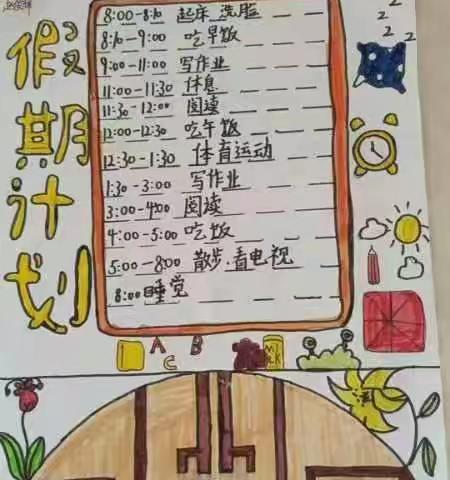 假期计划
8:00-8:10 起床 洗脸
8:10-9:00 吃早饭
9:00-11:00 写作业
11:00-11:30 休息
11:30-12:00 阅读
12:00-12:30 吃午饭
12:30-1:30 体育运动
1:30-3:00 写作业
3:00-4:00 阅读
4:00-5:00 吃饭
5:00-8:00 散步.看电视
8:00睡觉
z
z
z
A B
C